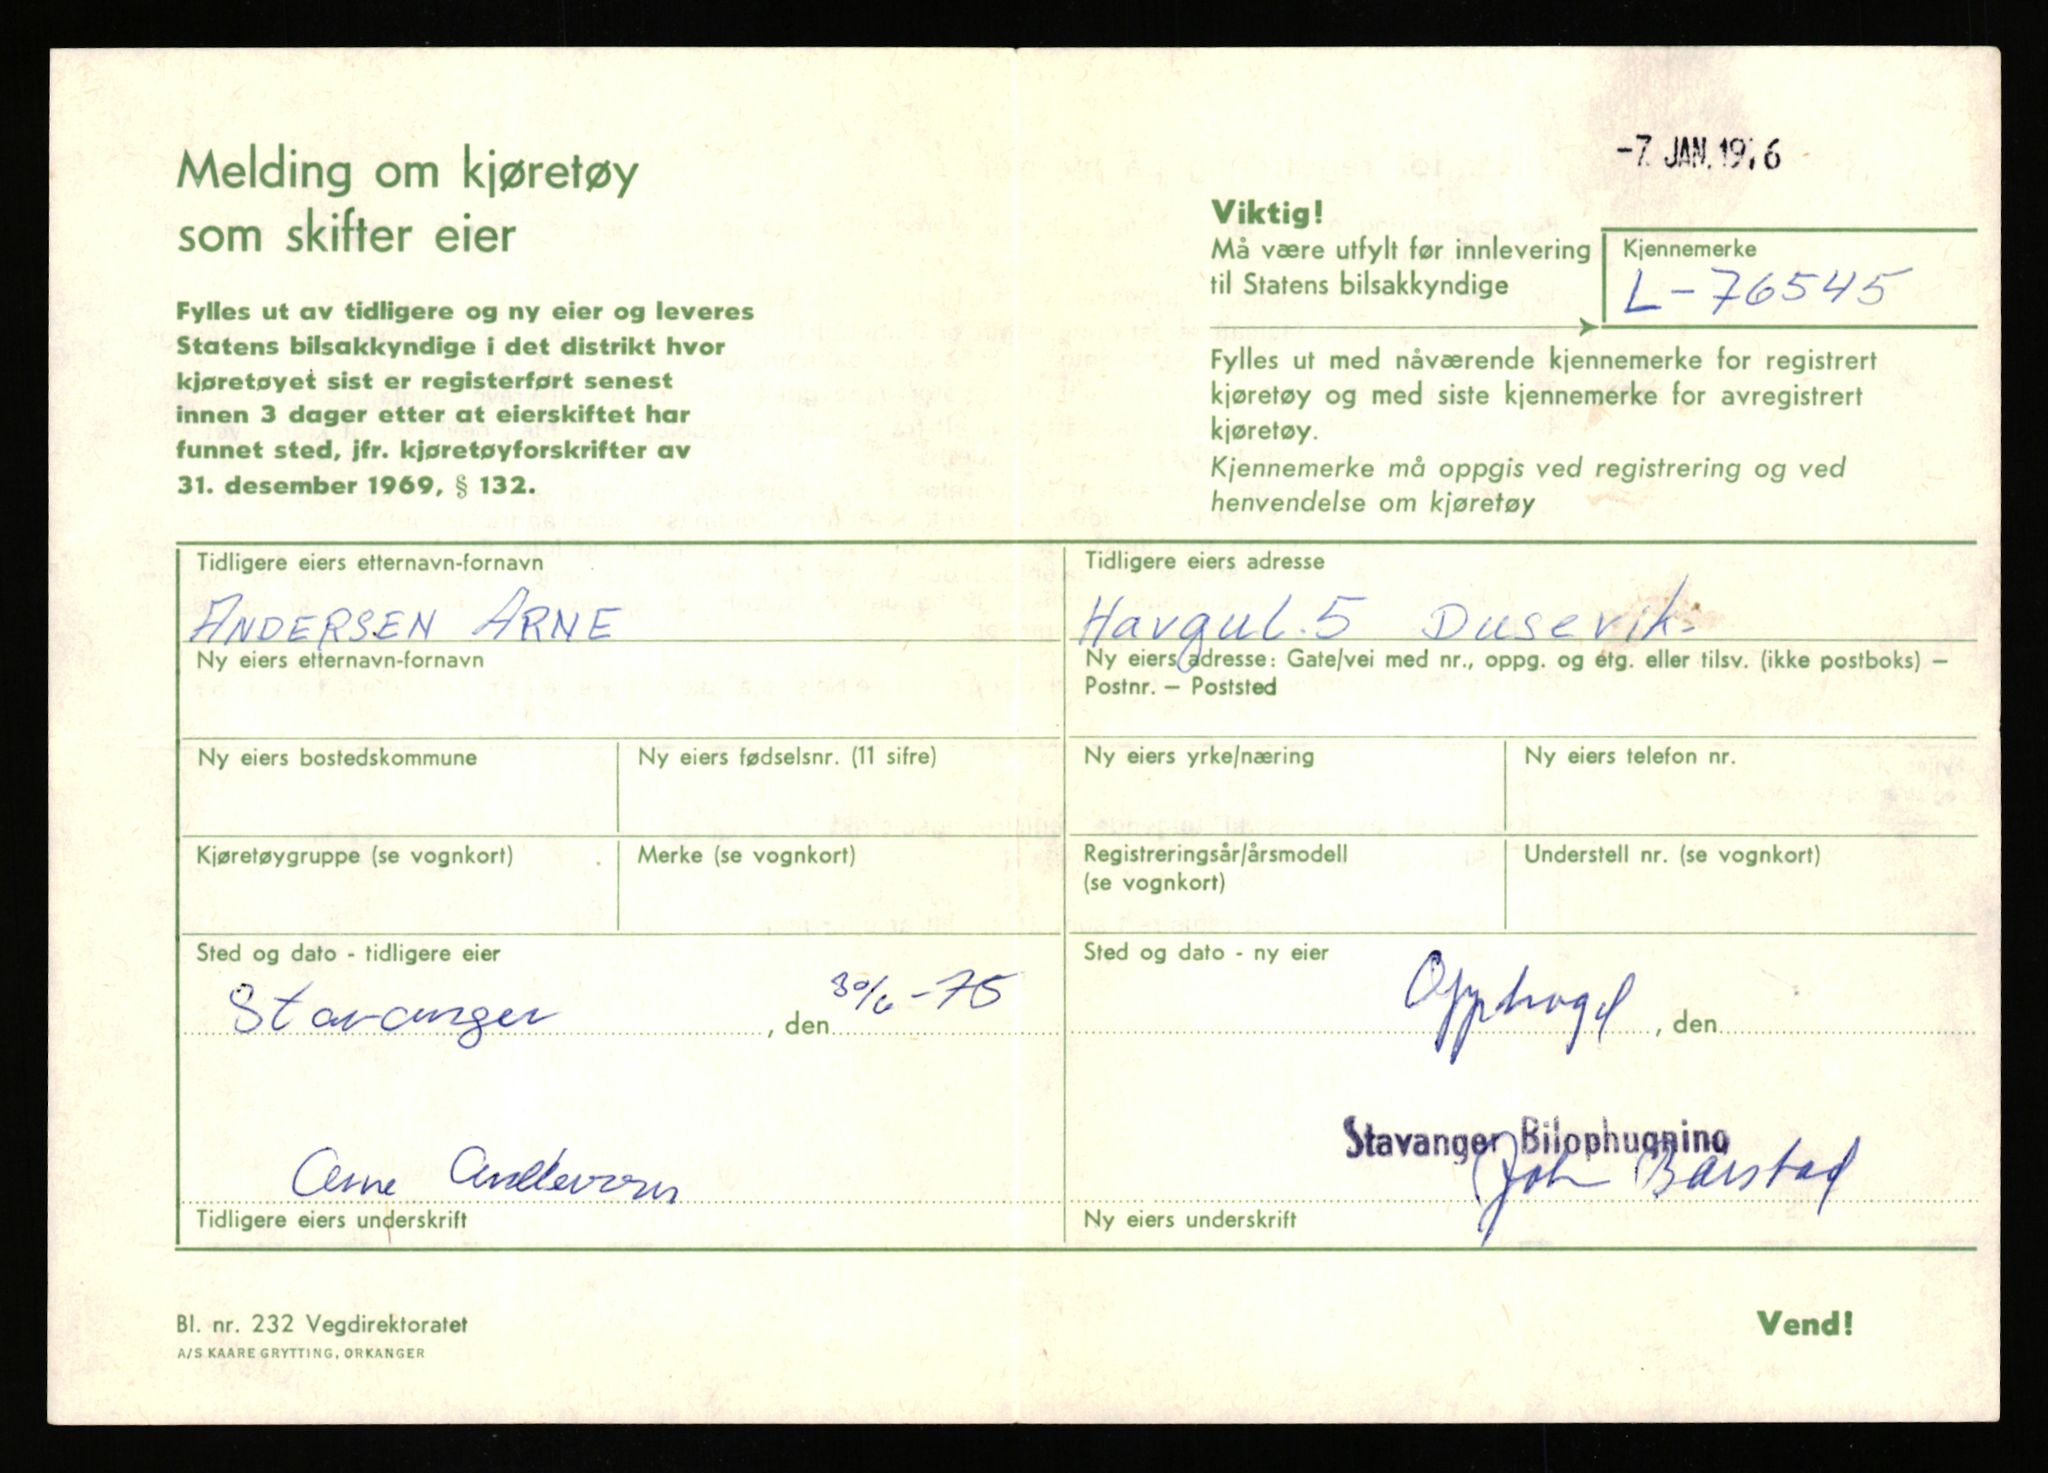 -7. JAN. 1976
Melding om kjøretøy
som skifter eier
Fylles ut av tidligere og ny eier og leveres
Statens bilsakkyndige i det distrikt hvor
kjøretøyet sist er registerført senest
innen 3 dager etter at eierskiftet har
funnet sted, jfr. kjøretøyforskrifter av
31. desember 1969, § 132.
Viktig!
Må være utfylt før innlevering
til Statens bilsakkyndige
Kjennemerke
L-76545
Fylles ut med nåværende kjennemerke for registrert
kjøretøy og med siste kjennemerke for avregistrert
kjøretøy.
Kjennemerke må oppgis ved registrering og ved
henvendelse om kjøretøy
Tidligere eiers etternavn-fornavn
ANDERSEN ARNE
Tidligere eiers adresse
Havgul. 5 Dusevik.
Ny eiers etternavn-fornavn
Ny eiers adresse: Gate/vei med nr., oppg. og etg. eller tilsv. (ikke postboks) –
Postnr. – Poststed
Ny eiers bostedskommune
Ny eiers fødselsnr. (11 sifre)
Ny eiers yrke/næring
Ny eiers telefon nr.
Kjøretøygruppe (se vognkort)
Merke (se vognkort)
Registreringsår/årsmodell
(se vognkort)
Understell nr. (se vognkort)
Sted og dato - tidligere eier
Stavanger, den 30/6-75
Sted og dato - ny eier
Opphogd, den
Arne Andersen
Tidligere eiers underskrift
Stavanger Bilophugning
John Barstad
Ny eiers underskrift
Bl. nr. 232 Vegdirektoratet
A/S KAARE GRYTTING, ORKANGER
Vend!